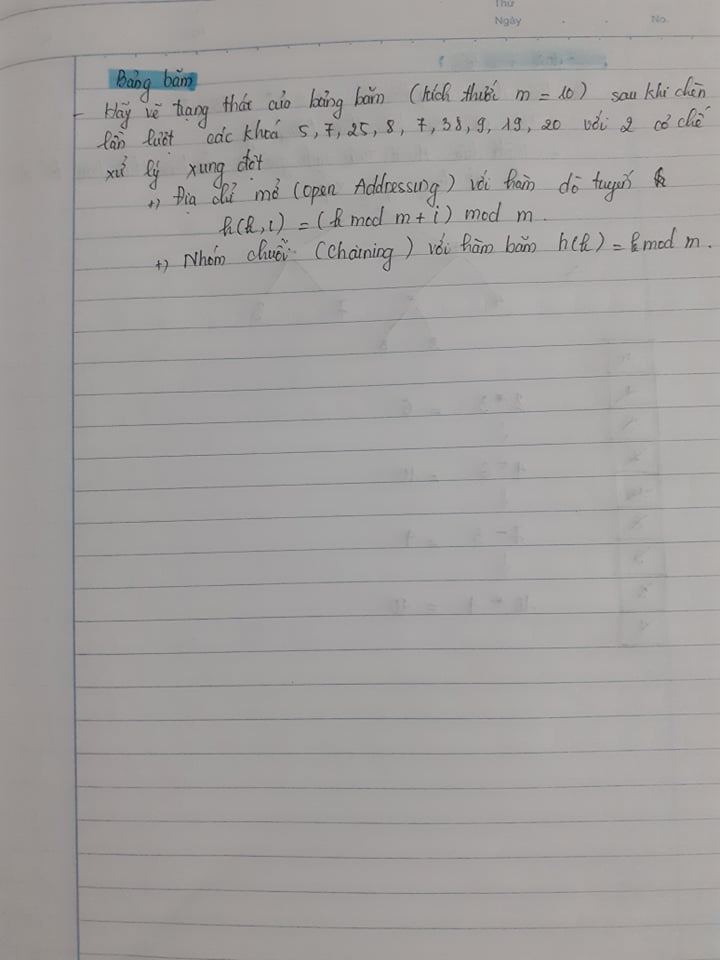 Thứ
Ngày . . No.
Bảng băm
- Hãy vẽ trạng thái của bảng băm (kích thước m = 10) sau khi chèn
lần lượt các khoá 5, 7, 25, 8, 7, 38, 9, 19, 20 với 2 cơ chế
xử lý xung đột
+) Địa chỉ mở (open Addressing) với hàm dò tuyến
h(k, i) = (k mod m + i) mod m.
+) Nhóm chuỗi (Chaining) với hàm băm h(k) = k mod m.